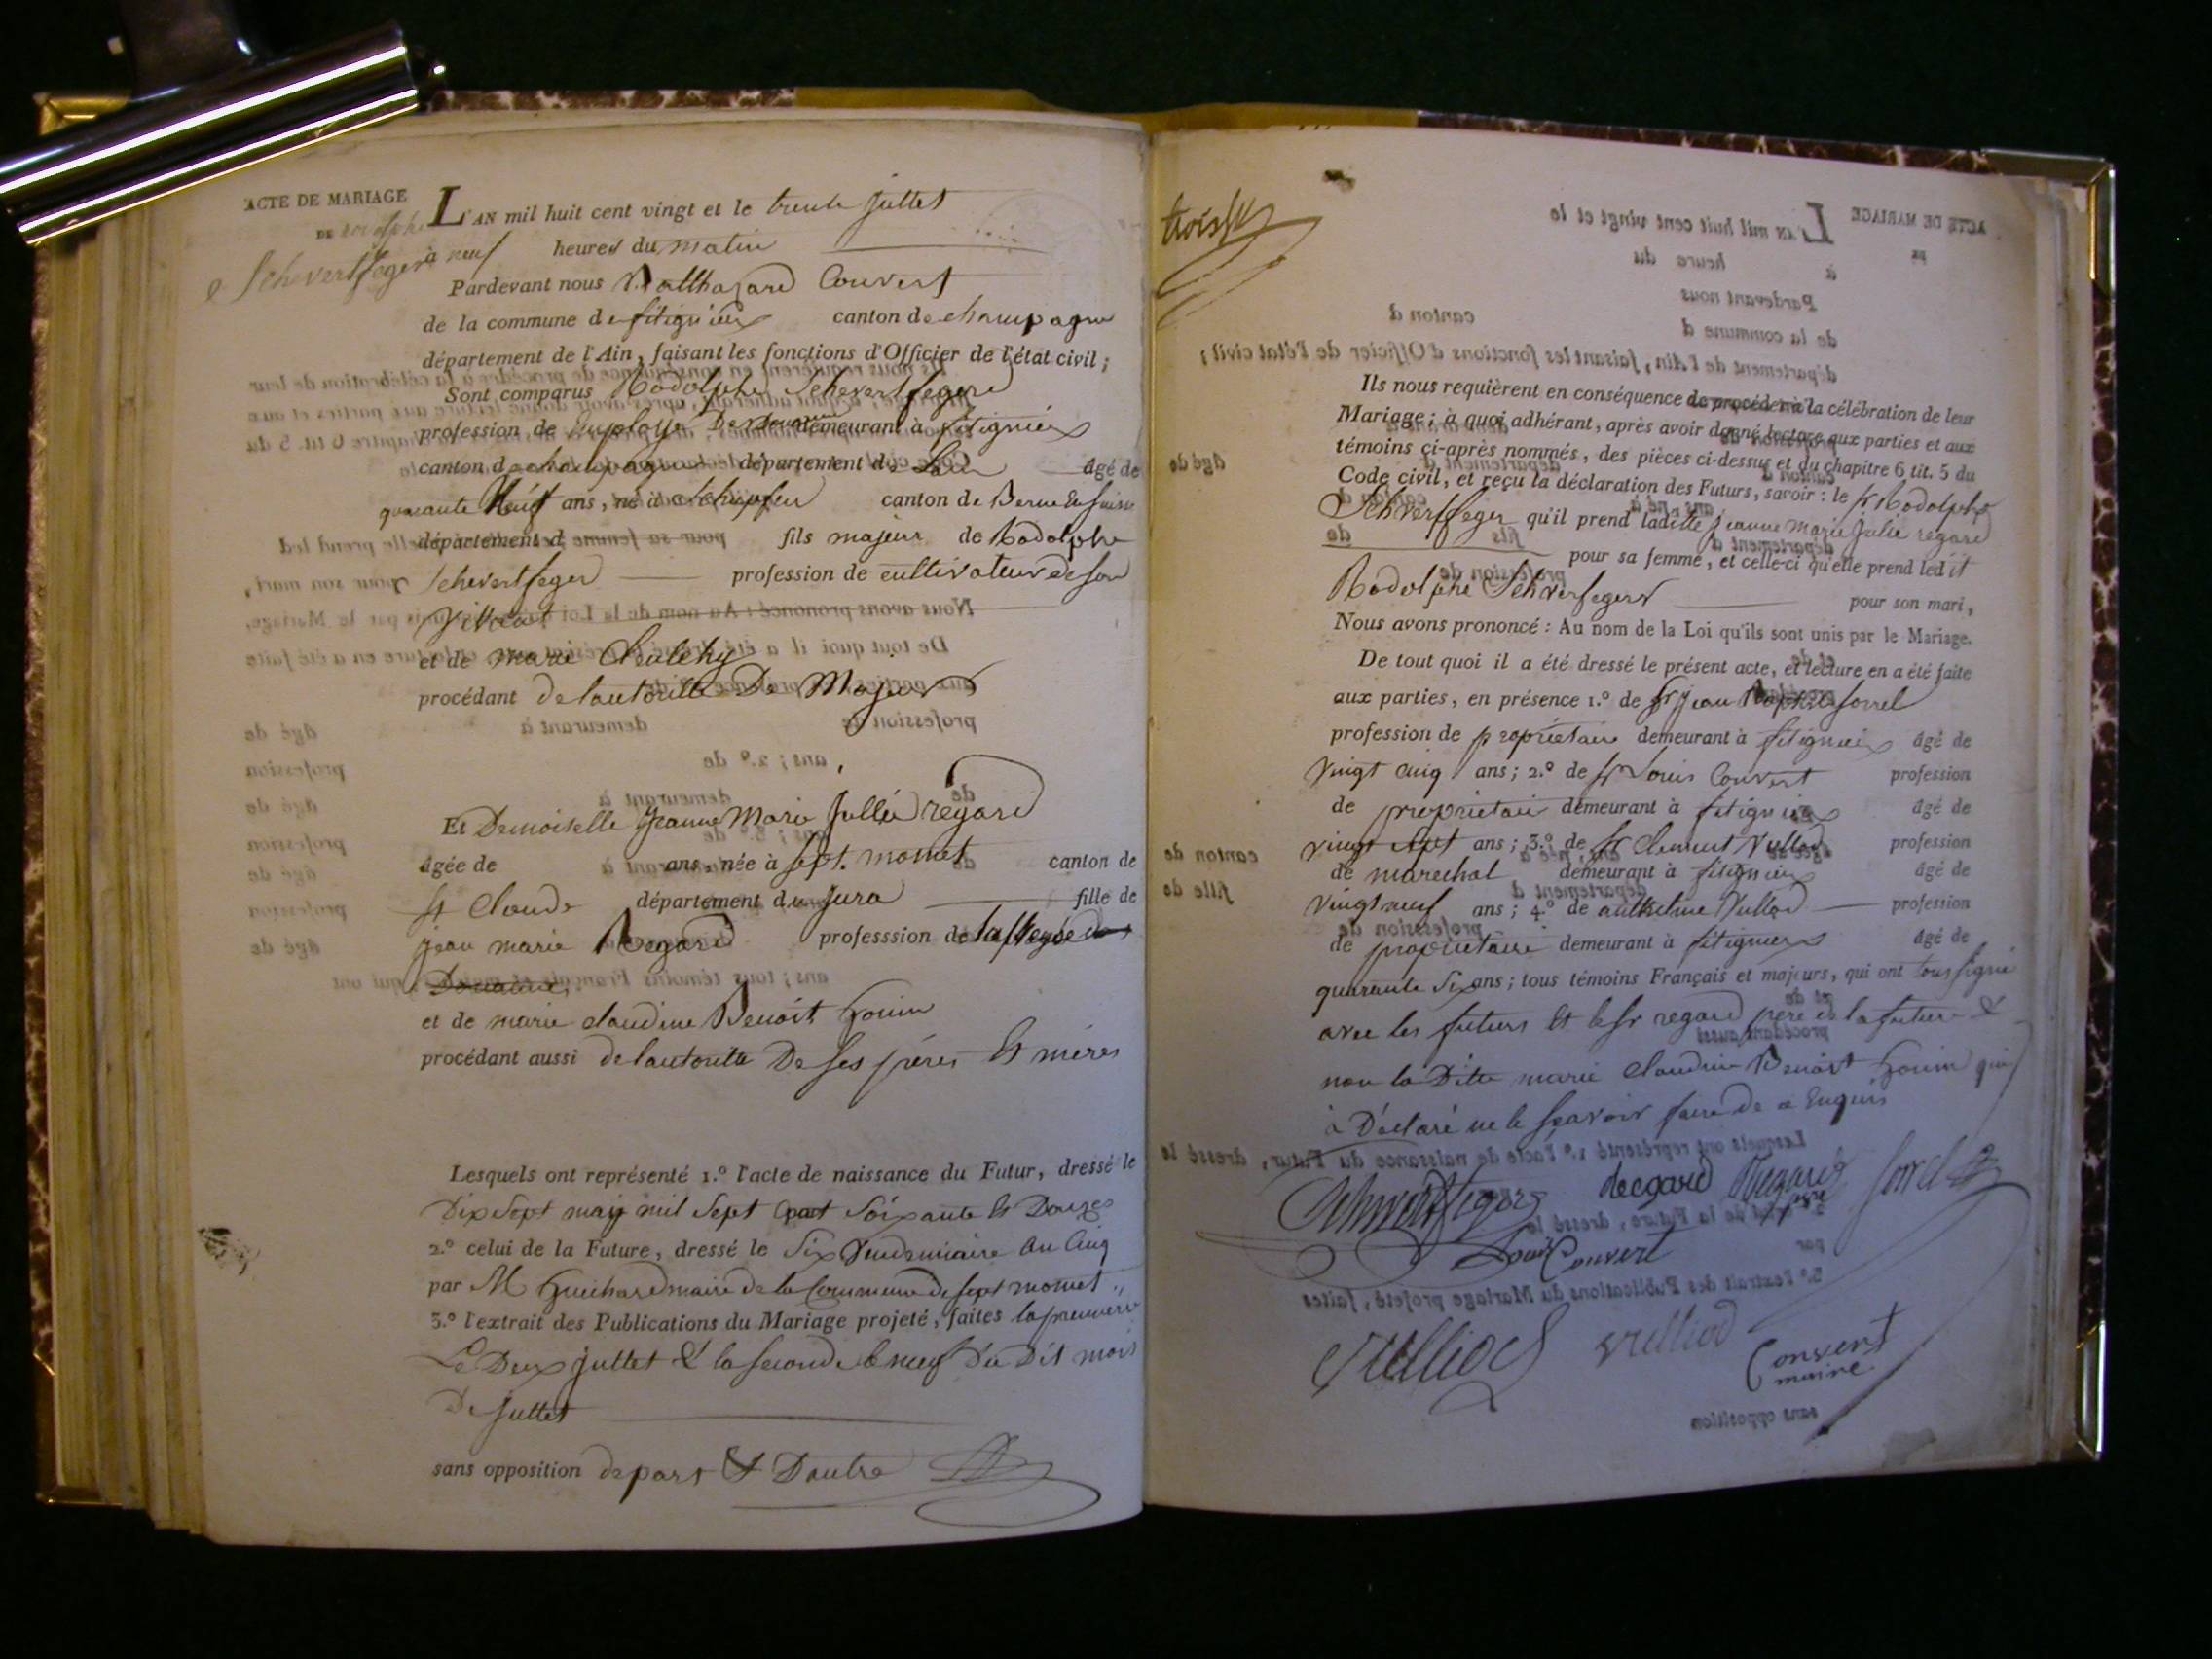 ACTE DE MARIAGE
DE Rodolphe
Schevertfeger
L'AN mil huit cent vingt et le trente juillet
à neuf heures du matin
Pardevant nous Balthazard Convert
de la commune de fitignieux canton de champagne
département de l'Ain, faisant les fonctions d'Officier de l'état civil;
Sont comparus Rodolphe Schevertfeger
profession de Employé demeurant à fitignieux
canton de champagne département de Lain âgé de
quarante Neuf ans, né à Schupfen canton de Berne En suisse
département d fils majeur de Rodolphe
Schevertfeger profession de cultivateur de son
vivant
et de marie
procédant de lautorité De Majeur
Et Demoiselle Jeanne Marie Jullie regard
âgée de ans, née à sept. moncet canton de
st Claude département du Jura fille de
jean marie Regard professsion de
et de marie claudine Benoit gonin
procédant aussi de lautorité De ses pères Et mères
Lesquels ont représenté 1.º l'acte de naissance du Futur, dressé le
Dix Sept may mil Sept cent Soixante Et Douze
2.º celui de la Future, dressé le Six Vendemiaire An Cinq
par M Guichard maire de la Commune de sept moncet
3.º l'extrait des Publications du Mariage projeté, faites la premiere
Le Deux juillet & la seconde le neuf Du Dit mois
De juillet
sans opposition de part Et Dautre
trois
Ils nous requièrent en conséquence de procéder à la célébration de leur
Mariage; à quoi adhérant, après avoir donné lecture aux parties et aux
témoins ci-après nommés, des pièces ci-dessus et du chapitre 6 tit. 5 du
Code civil, et reçu la déclaration des Futurs, savoir: le sr Rodolphe
Schverfeger qu'il prend laditte jeanne marie julie regard
pour sa femme, et celle-ci qu'elle prend ledit
Rodolphe Schverfeger pour son mari,
Nous avons prononcé: Au nom de la Loi qu'ils sont unis par le Mariage.
De tout quoi il a été dressé le présent acte, et lecture en a été faite
aux parties, en présence 1.º de sr jean sorrel
profession de propriétaire demeurant à fitignieux âgé de
vingt cinq ans; 2.º de sr Louis Convert profession
de propriétaire demeurant à fitignieux âgé de
vingt sept ans; 3.º de sr Clement Vulliod profession
de marechal demeurant à fitignieux âgé de
vingt neuf ans; 4.º de anthelme Vulliod profession
de propriétaire demeurant à fitignieux âgé de
quarante Six ans; tous témoins Français et majeurs, qui ont tous signé
avec les futurs Et le sr regard père de la future &
non la Ditte marie Claudine Benoist gonin qui
à Déclaré ne le scavoir faire de ce Enquis
Schwertfeger Regard Regard père sorrel
Louis Convert
Vulliod vulliod Convert
maire